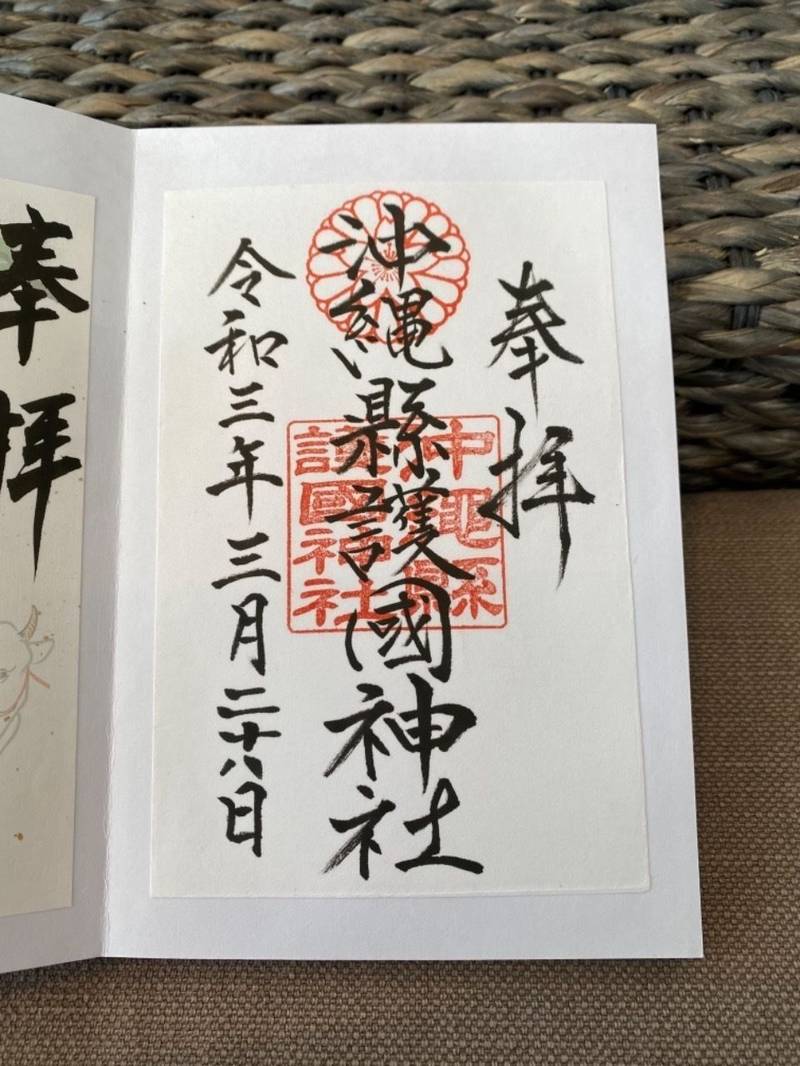 奉拝
沖縄縣護國神社
沖縄縣
護國神社
令和三年三月二十八日
奉拝